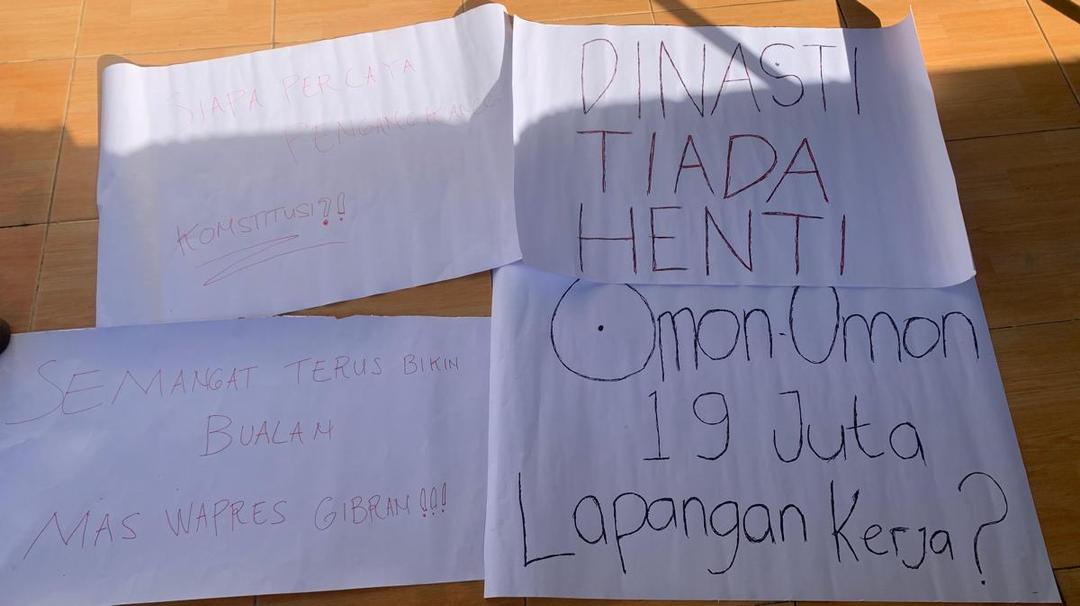 SIAPA PERCAYA
PENGANGKANG
KOMSTITUSI?!
DINASTI
TIADA
HENTI
SEMANGAT TERUS BIKIN
BUALAN
MAS WAPRES GIBRAN!!!
Omon-Omon
19 Juta
Lapangan Kerja?